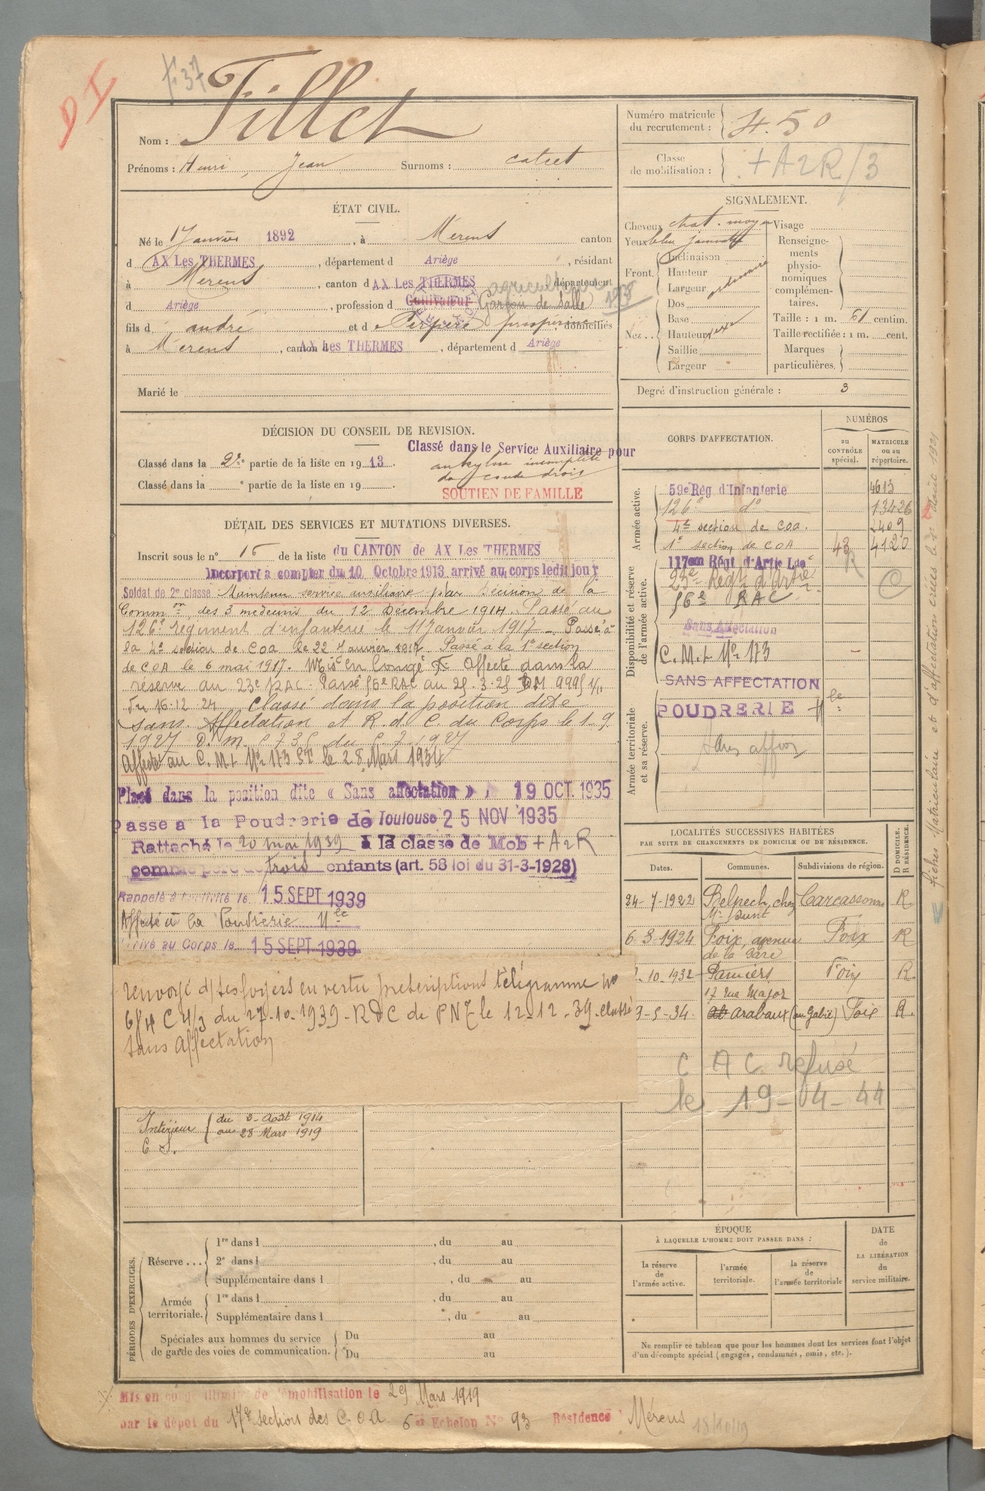 D I
f. 37
Nom : Fillet
Prénoms : Henri Jean Surnoms : cadet
ÉTAT CIVIL.
Né le 17 Janvier 1892, à Mérens canton
d AX Les THERMES, département d Ariège, résidant
à Mérens, canton d AX Les THERMES département
d Ariège, profession d Cultivateur Garçon de Salle
fils d André et d domiciliés
à Mérens, canton AX Les THERMES, département d Ariège
Marié le
DÉCISION DU CONSEIL DE REVISION.
Classé dans le Service Auxiliaire pour
Classé dans la 2e partie de la liste en 1913.
ankylose incomplète
du coude droit
Classé dans la e partie de la liste en 19
SOUTIEN DE FAMILLE
DÉTAIL DES SERVICES ET MUTATIONS DIVERSES.
Inscrit sous le n° 16 de la liste du CANTON de AX Les THERMES
Incorporé à compter du 10 Octobre 1913 arrivé au corps ledit jour
Soldat de 2e classe Maintenu service auxiliaire par décision de la
Comm on des 3 médecins du 12 Décembre 1914. Passé au
126e régiment d'infanterie le 11 Janvier 1917. Passé à
la 4e section de COA le 22 Janvier 1917. Passé à la 1e section
de COA le 6 mai 1917. Mis en Congé Affecté dans la
réserve au 23e RAC. Passé 56e RAC au 25.3.25 DM 9995 1/11
du 16.12.24. Classé dans la position dite
sans Affectation et R. d. C. du Corps le 1.9
1927 D. m. du 1927
Affecté au C. M. I. N° 173 le 28 Mars 1934
Placé dans la position dite « Sans affectation » 19 OCT. 1935
passé à la Poudrerie de Toulouse 25 NOV 1935
Rattaché le 20 mai 1939 à la classe de Mob + A 2 R
comme père de trois enfants (art. 58 loi du 31-3-1928)
Rappelé à l'activité le 15 SEPT 1939
Affecté à la Poudrerie Nle
Arrivé au Corps le 15 SEPT 1939
renvoyé d/ses foyers en vertu prescriptions télégramme n°
C 4/3 du 27-10-1939 - RDC de PNle le 12-12-39 classé
sans affectation
Intérieur du 3 Août 1914
C S. au 28 Mars 1919
PÉRIODES D'EXERCICES.
Réserve ... 1re dans l , du au
2e dans l , du au
Supplémentaire dans l , du au
Armée territoriale. 1re dans l , du au
Supplémentaire dans l , du au
Spéciales aux hommes du service
de garde des voies de communication. Du au
Du au
Mis en congé illimité de démobilisation le 29 Mars 1919
par le dépôt du 17e section des C.O.A 6e Echelon N° 93 Résidence Mérens
Numéro matricule
du recrutement : 450
Classe
de mobilisation : + A2R/3
SIGNALEMENT.
Cheveux chat. moyen
Yeux bleu
Front. Inclinaison
Hauteur
Largeur ordinaire
Nez... Dos
Base
Hauteur
Saillie
Largeur
Visage
Renseigne-
ments
physio-
nomiques
complémen-
taires.
Taille : 1 m. 61 centim.
Taille rectifiée : 1 m. cent.
Marques
particulières.
Degré d'instruction générale : 3
CORPS D'AFFECTATION.
NUMÉROS
au
CONTRÔLE
spécial.
MATRICULE
ou au
répertoire.
Armée active.
59e Rég. d'Infanterie 4613
126e do 13426
4e section de COA 2409
1e section de COA 43 4120
Disponibilité et réserve
de l'armée active.
117ème Régt d'Artie Lde
23e Régt d'Artie
56e RAC
Sans Affectation
C. M. I. N° 173
SANS AFFECTATION
Armée territoriale
et sa réserve.
POUDRERIE Nle
LOCALITÉS SUCCESSIVES HABITÉES
PAR SUITE DE CHANGEMENTS DE DOMICILE OU DE RÉSIDENCE.
Dates. Communes. Subdivisions de région. D DOMICILE. R RÉSIDENCE.
24-7-1922 Belpech, chez Carcassonne R
6-3-1924 Foix, avenue de la Gare Foix R
10.1932 Pamiers 17 Rue Major Foix R.
34. Arabaux Foix R.
C A C. refusé
le 19-04-44
ÉPOQUE
À LAQUELLE L'HOMME DOIT PASSER DANS :
la réserve
de
l'armée active.
l'armée
territoriale.
la réserve
de
l'armée territoriale
DATE
de
LA LIBÉRATION
du
service militaire.
Ne remplir ce tableau que pour les hommes dont les services font l'objet
d'un décompte spécial (engagés, condamnés, omis, etc.).